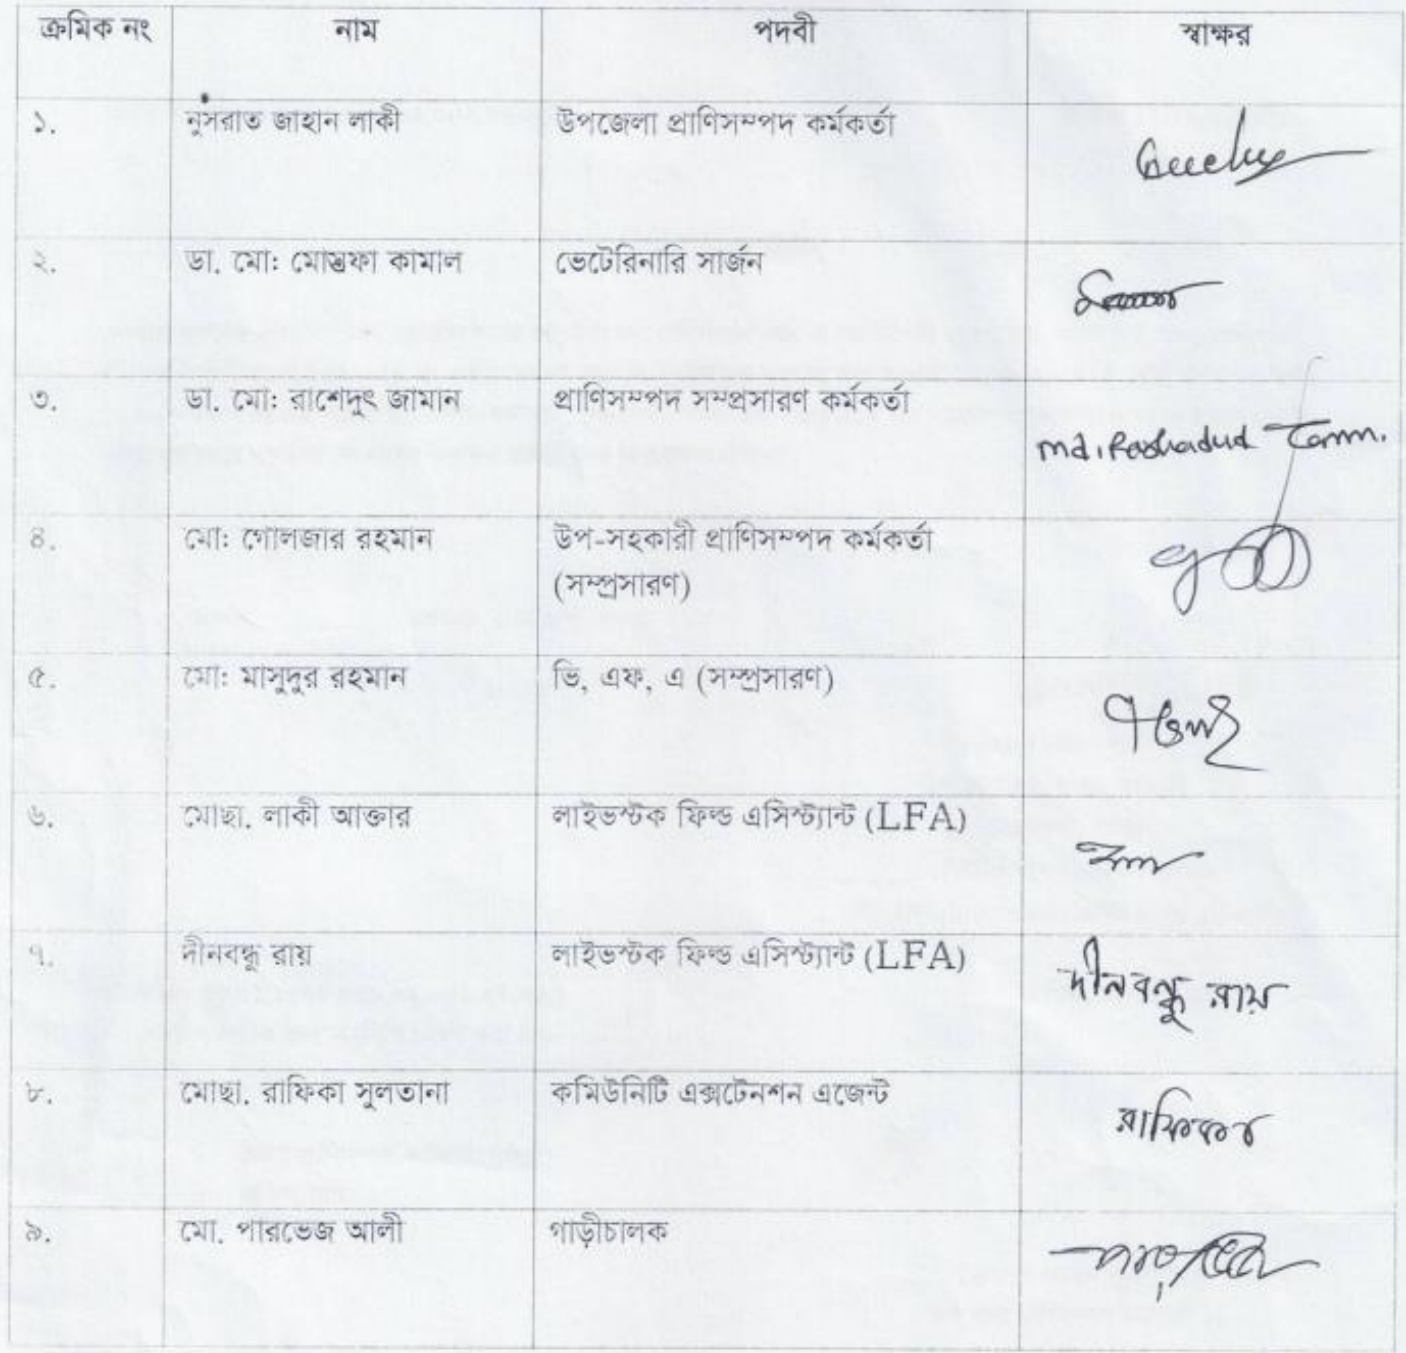 ক্রমিক নং নাম পদবী স্বাক্ষর
১. নুসরাত জাহান লাকী উপজেলা প্রাণিসম্পদ কর্মকর্তা
২. ডা. মো: মোস্তফা কামাল ভেটেরিনারি সার্জন
৩. ডা. মো: রাশেদুৎ জামান প্রাণিসম্পদ সম্প্রসারণ কর্মকর্তা
md. Rashadud
৪. মো: গোলজার রহমান উপ-সহকারী প্রাণিসম্পদ কর্মকর্তা
(সম্প্রসারণ)
৫. মো: মাসুদুর রহমান ভি, এফ, এ (সম্প্রসারণ)
৬. মোছা. লাকী আক্তার লাইভস্টক ফিল্ড এসিস্ট্যান্ট (LFA)
৭. দীনবন্ধু রায় লাইভস্টক ফিল্ড এসিস্ট্যান্ট (LFA) দীনবন্ধু রায়
৮. মোছা. রাফিকা সুলতানা কমিউনিটি এক্সটেনশন এজেন্ট রাফিকা
৯. মো. পারভেজ আলী গাড়ীচালক